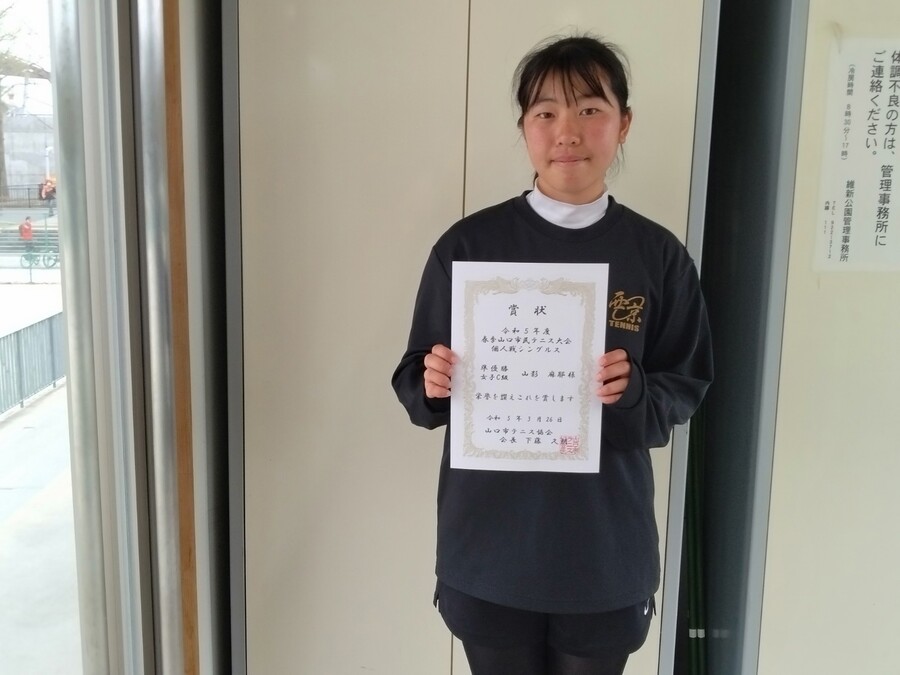 賞状
令和5年度
春季山口市民テニス大会
個人戦シングルス
準優勝
女子C組
山影 麻耶 様
栄誉を讃えこれを賞します
令和5年3月26日
山口市テニス協会
会長 下藤 久
西京
TENNIS
体調不良の方は、管理事務所に
ご連絡ください。
8時30分~17時)
維新公園管理事務所